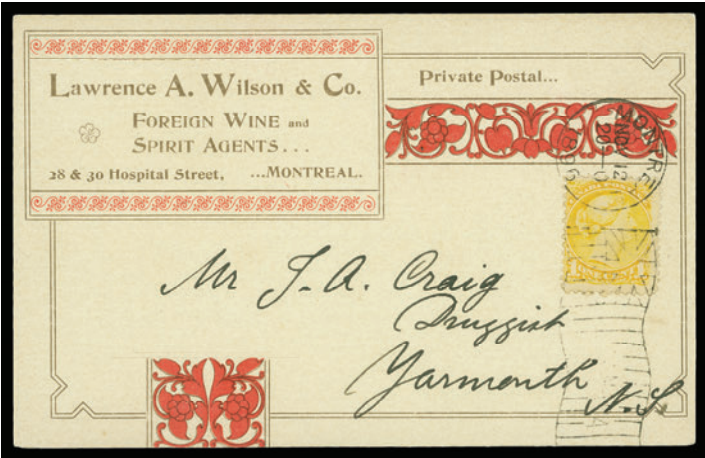 Lawrence A. Wilson & Co.
Foreign Wine and
Spirit Agents...
28 & 30 Hospital Street, ...Montreal.
Private Postal...
Mr J. A. Craig
Druggist
Yarmouth N.S.